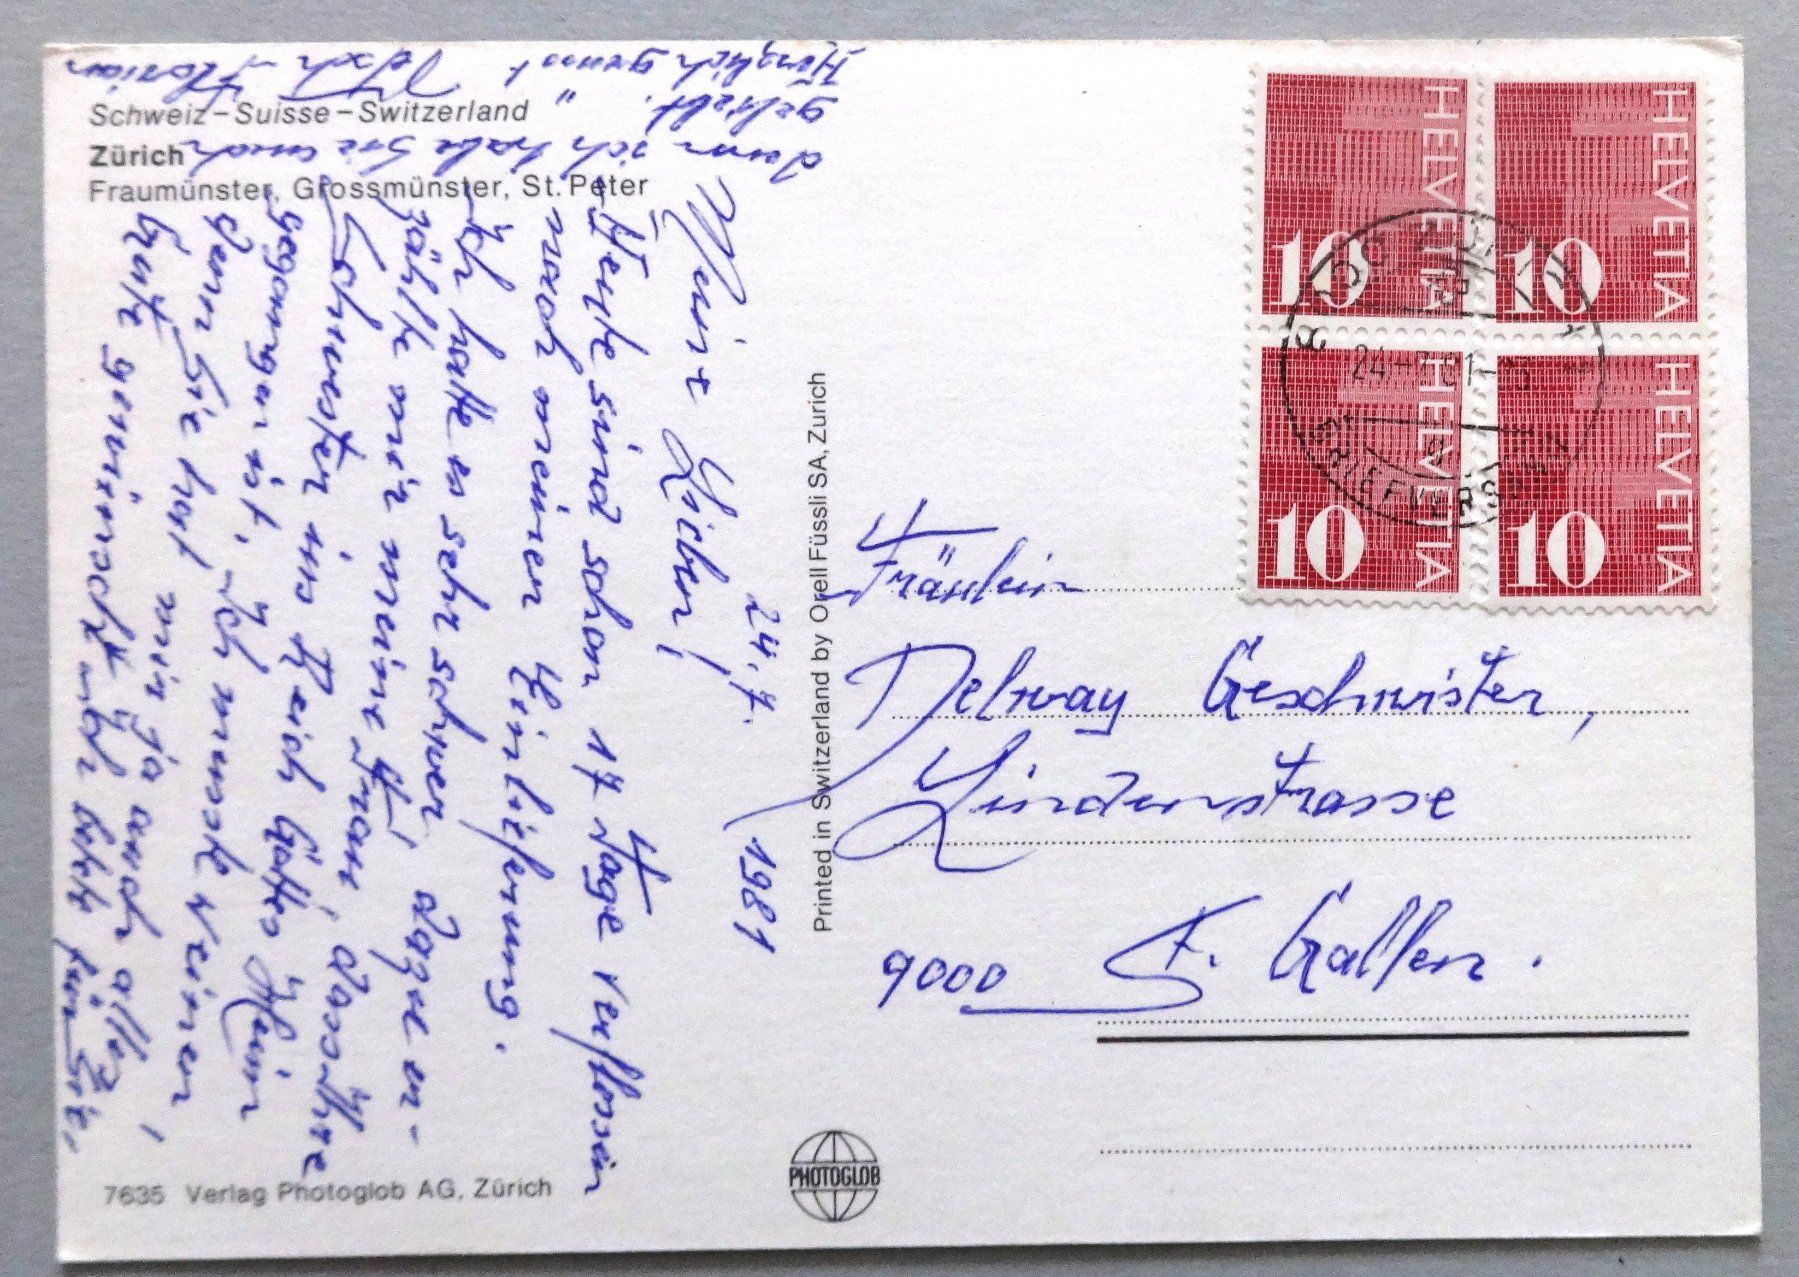 Schweiz–Suisse–Switzerland
Zürich
Fraumünster, Grossmünster, St. Peter
24. 7. 1981
Meine Lieben!
Heute sind schon 17 Tage verflossen
nach meiner Einlieferung.
Ich hatte es sehr schwer dazu er-
zählte mir meine Frau, dass Ihre
Schwester ins Reich Gottes Heim
gegangen ist, Ich musste weinen,
denn Sie hat mir ja auch alles
Gute gewünscht
denn ich habe Sie auch
geliebt.
Herzlich grüsst
Florian
Printed in Switzerland by Orell Füssli SA, Zurich
HELVETIA
10
HELVETIA
10
HELVETIA
10
HELVETIA
10
BRIEFVERSAND
Fräulein
Geschwister,
Lindenstrasse
9000 St. Gallen.
7635 Verlag Photoglob AG, Zürich
PHOTOGLOB